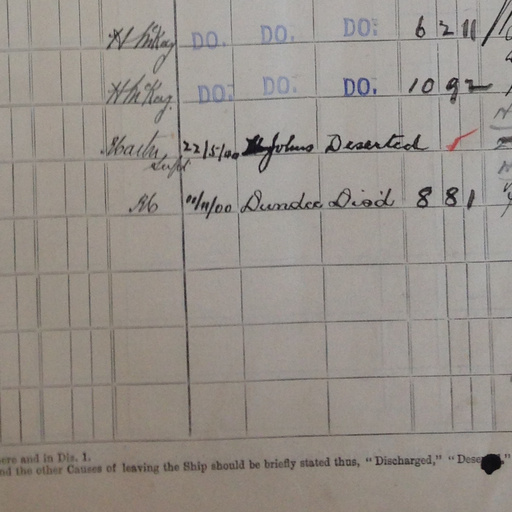 H McKay DO. DO. DO: 6 2 11
H McKay DO. DO. DO. 10 9 2
22/5/00 St Johns Deserted ✓
11/00 Dundee Disd 8 8 1
ere and in Dis. 1.
nd the other Causes of leaving the Ship should be briefly stated thus, "Discharged," "